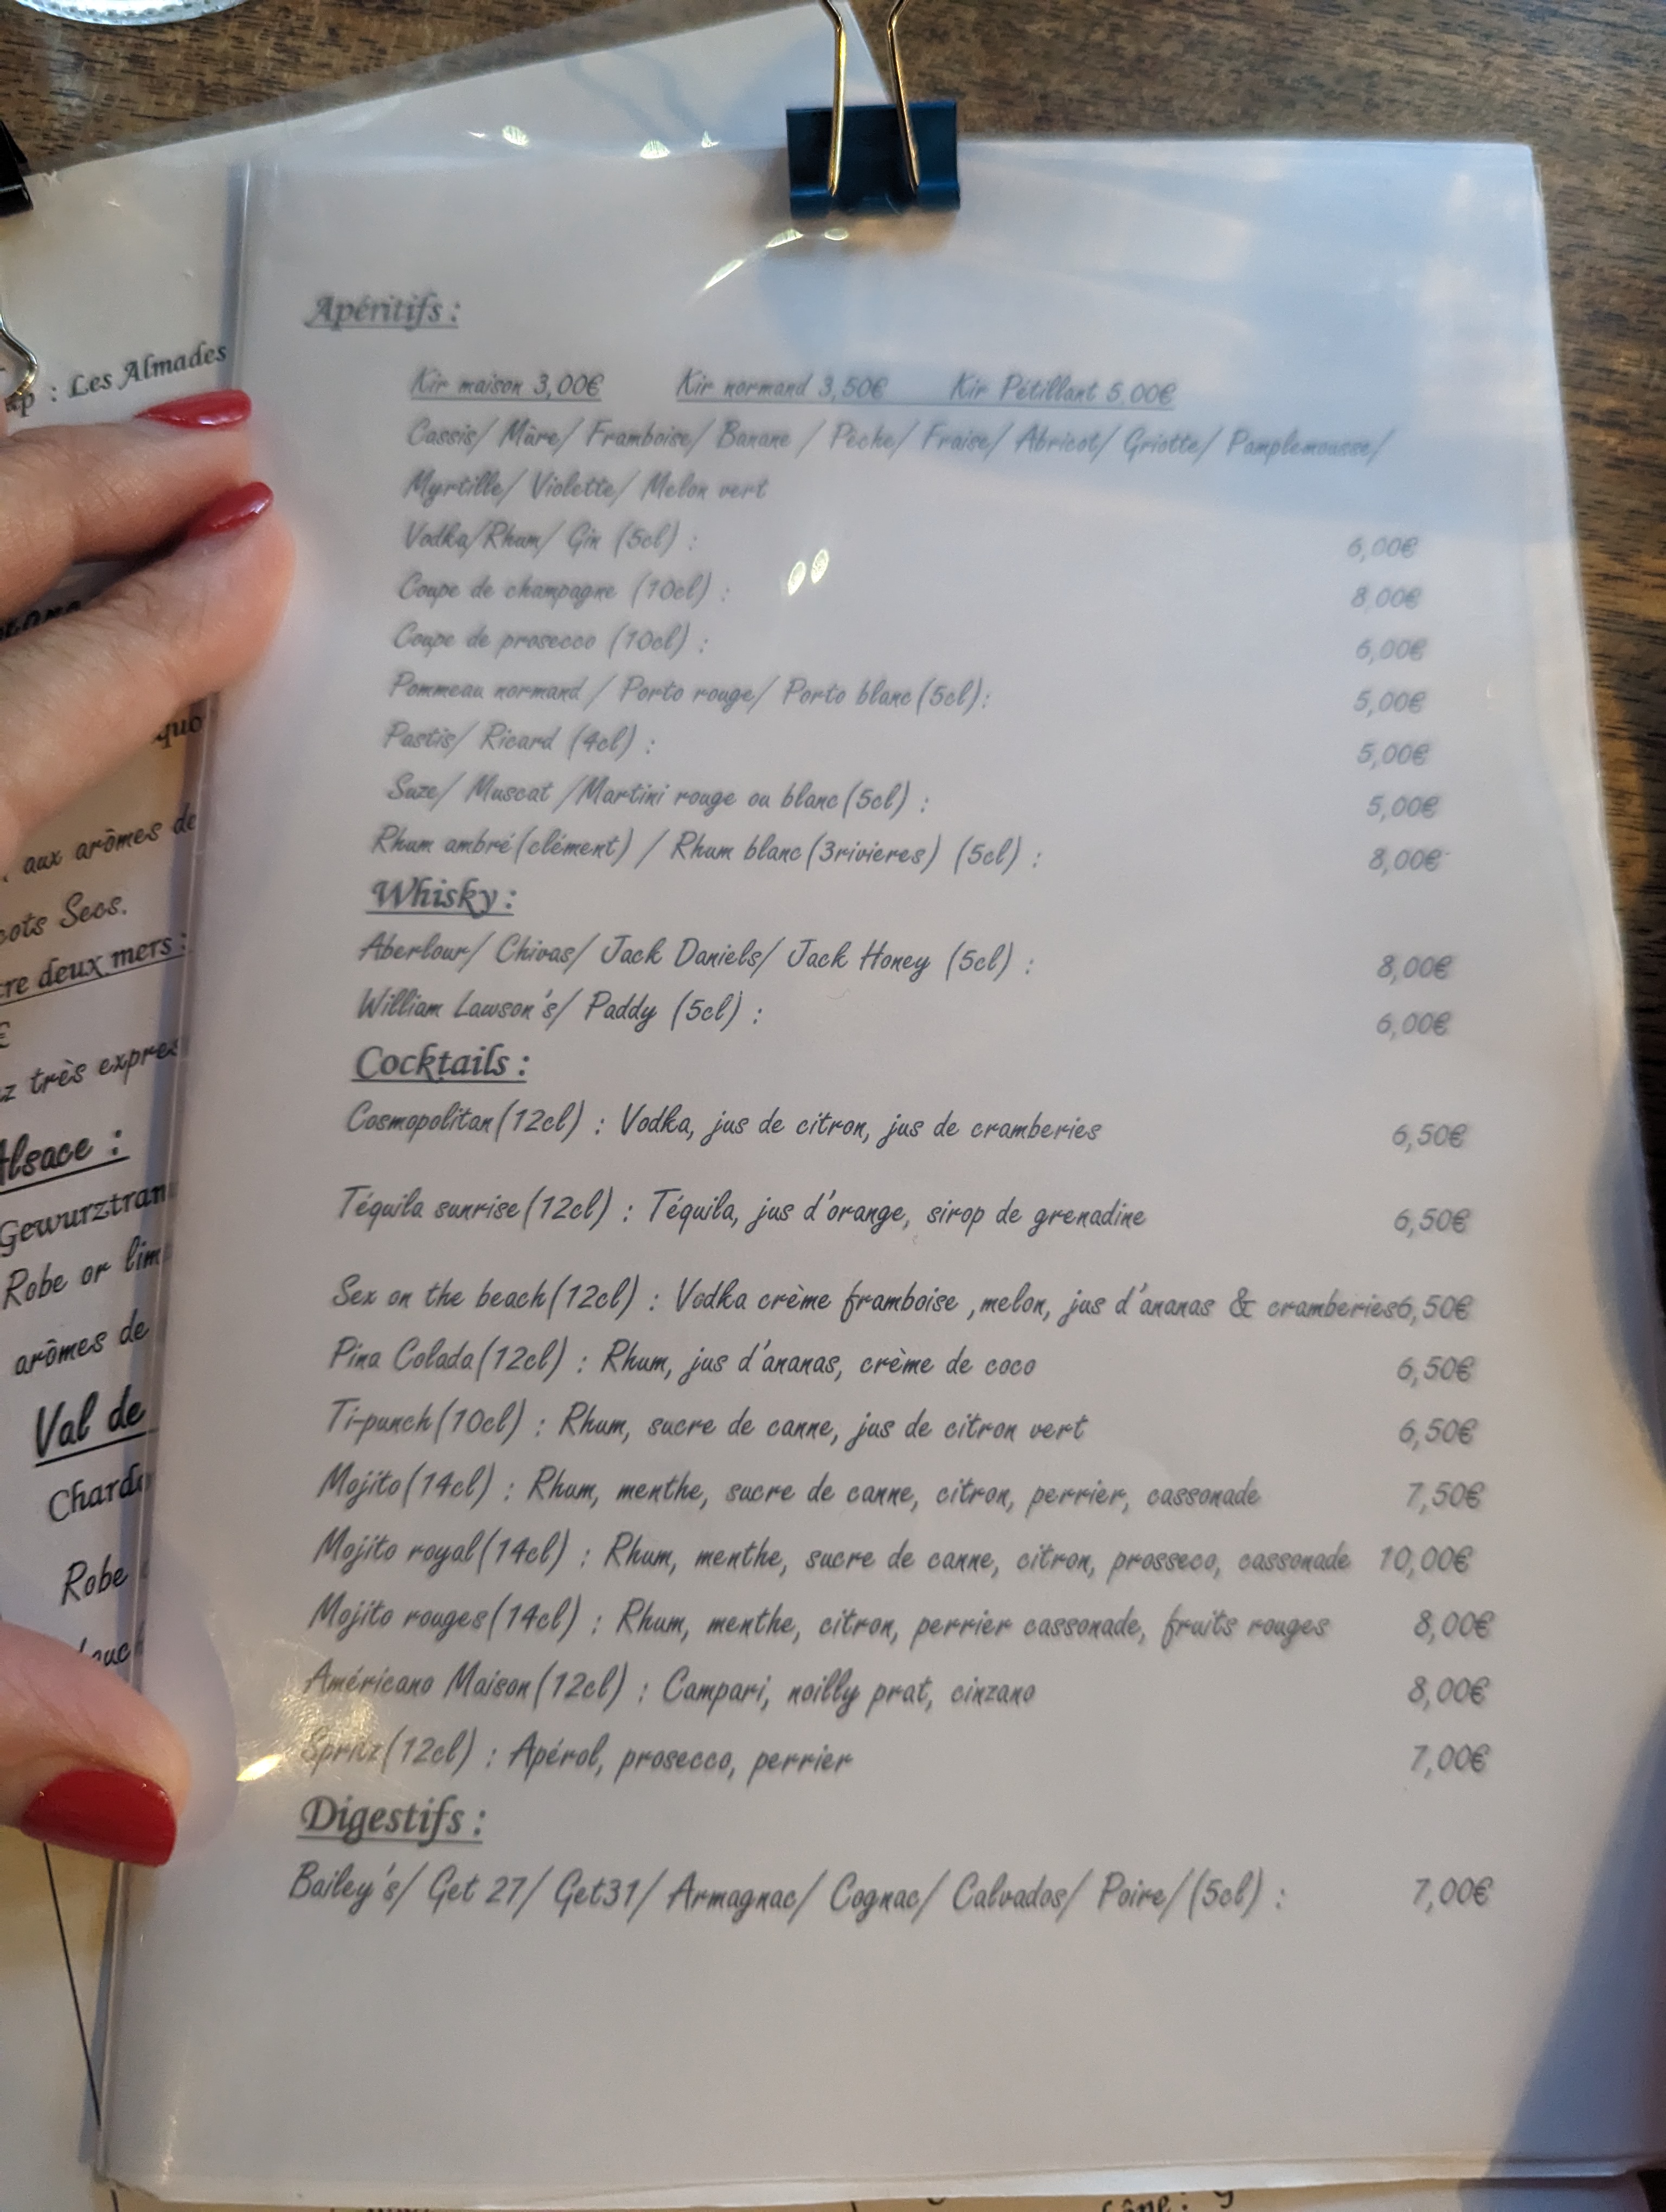 : Les Almades
aux arômes de
Secs.
deux mers :
€
très
Alsace :
Robe or
arômes de
Val de
Robe
Apéritifs :
Kir maison 3,00€ Kir normand 3,50€ Kir Pétillant 5,00€
Cassis/ Mûre/ Framboise/ Banane / Pêche/ Fraise/ Abricot/ Griotte/ Pamplemousse/
Myrtille/ Violette/ Melon vert
Vodka/Rhum/ Gin (5cl) : 6,00€
Coupe de champagne (10cl) : 8,00€
Coupe de prosecco (10cl) : 6,00€
Pommeau normand / Porto rouge/ Porto blanc(5cl): 5,00€
Pastis/ Ricard (4cl) : 5,00€
Suze/ Muscat /Martini rouge ou blanc(5cl) : 5,00€
Rhum ambré(clément) / Rhum blanc(3rivieres) (5cl) : 8,00€
Whisky :
Aberlour/ Chivas/ Jack Daniels/ Jack Honey (5cl) : 8,00€
William Lawson's/ Paddy (5cl) : 6,00€
Cocktails :
Cosmopolitan(12cl) : Vodka, jus de citron, jus de cramberies 6,50€
Téquila sunrise(12cl) : Téquila, jus d'orange, sirop de grenadine 6,50€
Sex on the beach(12cl) : Vodka crème framboise ,melon, jus d'ananas & cramberies6,50€
Pina Colada(12cl) : Rhum, jus d'ananas, crème de coco 6,50€
Ti-punch(10cl) : Rhum, sucre de canne, jus de citron vert 6,50€
Mojito(14cl) : Rhum, menthe, sucre de canne, citron, perrier, cassonade 7,50€
Mojito royal(14cl) : Rhum, menthe, sucre de canne, citron, prosseco, cassonade 10,00€
Mojito rouges(14cl) : Rhum, menthe, citron, perrier cassonade, fruits rouges 8,00€
Américano Maison(12cl) : Campari, noilly prat, cinzano 8,00€
Spritz(12cl) : Apérol, prosecco, perrier 7,00€
Digestifs :
Bailey's/ Get 27/ Get31/ Armagnac/ Cognac/ Calvados/ Poire/(5cl) : 7,00€